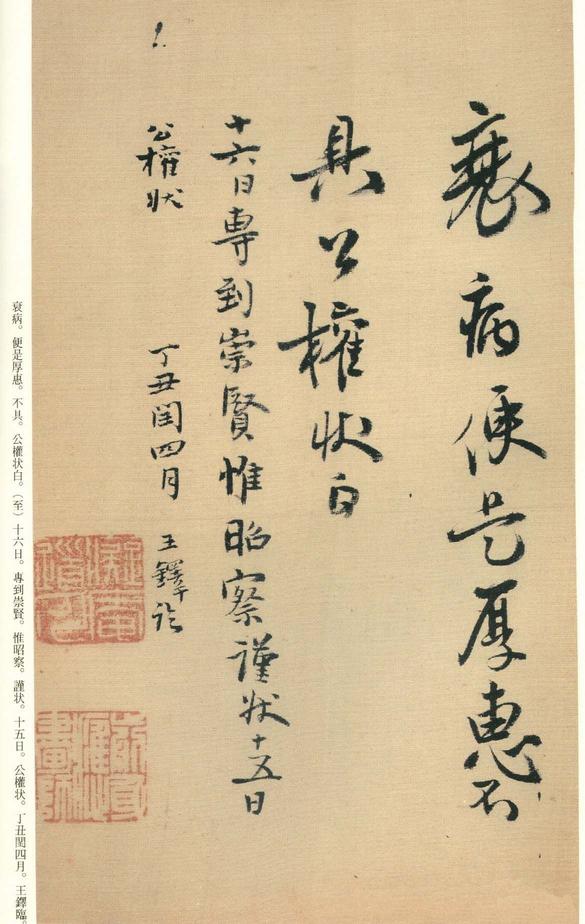 衰病便是厚惠不
具公權状白
十六日專到崇賢惟昭察謹状十五日
公權状 丁丑閏四月 王鐸臨
衰病。便是厚惠。不具。公權状白。（至）十六日。專到崇賢。惟昭察。謹状。十五日。公權状。丁丑閏四月。王鐸臨。